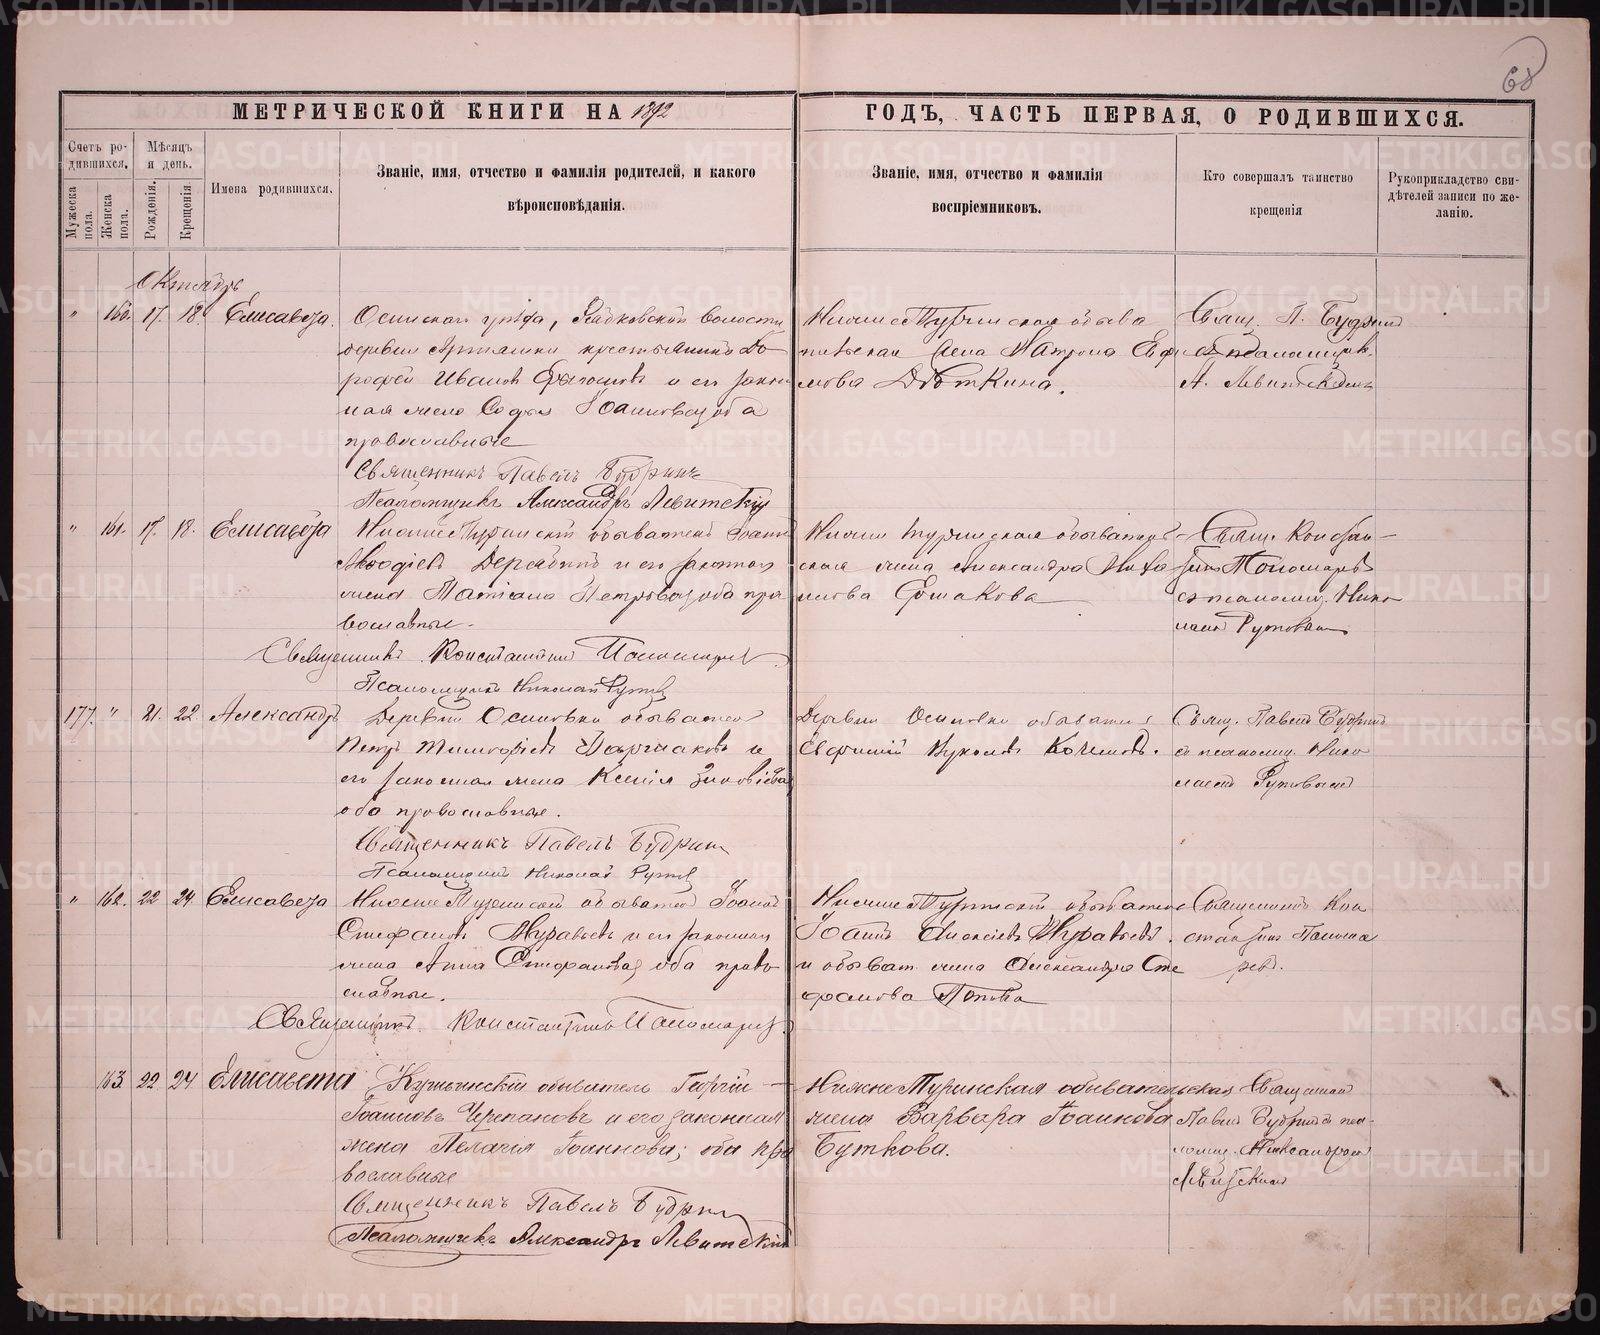 68
МЕТРИЧЕСКОЙ КНИГИ НА 1892
ГОДЪ, ЧАСТЬ ПЕРВАЯ, О РОДИВШИХСЯ.
Счетъ ро-
дившихся.
Мужеска
пола.
Женска
пола.
Мѣсяцъ
и день.
Рожденія.
Крещенія.
Имена родившихся.
Званіе, имя, отчество и фамилія родителей, и какого
вѣроисповѣданія.
Званіе, имя, отчество и фамилія
воспріемниковъ.
Кто совершалъ таинство
крещенія
Рукоприкладство сви-
дѣтелей записи по же-
ланію.
Октябрь
" 160. 17. 18. Елисавета.
Осинскаго уѣзда, волости
деревни крестьянинъ До-
рофей Ивановъ и его закон-
ная жена Софья Іоанновна, оба
православные
Священникъ Павелъ Будринъ
Псаломщикъ Александръ Левитскій
Нижне Туринская обыва
тельская жена Матрона Еф
мова
Свящ. П. Будрин
съ псаломщик.
А. Левитскимъ
" 161. 17. 18. Елисавета
Нижне Туринскій обыватель Іоаннъ
и его законная
жена Татіана Петровна, оба пра
вославные.
Священникъ Константинъ Пономаревъ
Псаломщикъ Николай
Нижне Туринская обыватель-
ская жена Александра
Ермакова
Свящ. Констан-
тинъ Пономаревъ
съ псаломщ. Нико
лаемъ
177. " 21. 22. Александръ
Деревни Осиновки обыватель
Петръ Тимофѣевъ и
его законная жена Ксенія Зиновіева,
оба православные.
Священникъ Павелъ Будринъ
Псаломщикъ Николай
Деревни Осиновки обыватель
Евфимій
Свящ. Павелъ Будринъ
съ псаломщ. Нико
лаемъ
" 162. 22 24 Елисавета
Нижне Туринскій обыватель Іоаннъ
Стефановъ Муравьевъ и его законная
жена Анна Стефанова, оба право
славные.
Священникъ Константинъ Пономаревъ
Нижне Туринскій обыватель
Іоаннъ Алексѣевъ Муравьевъ.
и обыват. жена Александра Сте
фанова Попова
Священникъ Кон
стантинъ Понома
ревъ.
163 22 24 Елисавета
Кушвинскій обыватель Георгій
Іоанновъ Черепановъ и его законная
жена Пелагія Іоаннова; оба пра
вославные
Священникъ Павелъ Будринъ
Псаломщикъ Александръ Левитскій
Нижне Туринская обывательская
жена Варвара Іоаннова
Буткова.
Священник
Павелъ Будринъ съ пса-
ломщ. Александромъ
Левитскимъ
METRIKI.GASO-URAL.RU